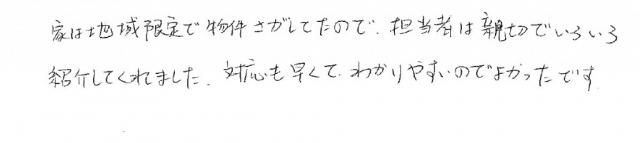 家は地域限定で物件さがしてたので、担当者は親切でいろいろ
紹介してくれました。対応も早くて、わかりやすいのでよかったです